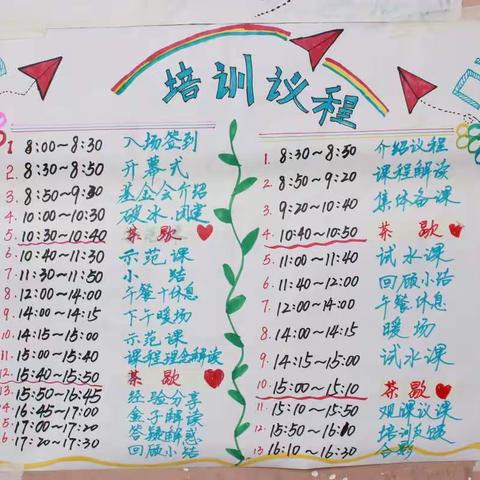 培训议程
1 8:00~8:30 入场签到
2. 8:30~8:50 开幕式
3. 8:50~9:30 基金会介绍
4. 10:00~10:30 破冰.团建
5. 10:30~10:40 茶歇
6. 10:40~11:30 示范课
7. 11:30~11:50 小结
8. 12:00~14:00 午餐+休息
9. 14:00~14:15 下午暖场
10. 14:15~15:00 示范课
11. 15:00~15:40 课程理念解读
12. 15:40~15:50 茶歇
13. 15:50~16:45 经验分享
4. 16:45~17:00 盒子解读
5. 17:00~17:20 答疑解惑
6. 17:20~17:30 回顾小结
1. 8:30~8:50 介绍议程
2. 8:50~9:20 课程解读
3. 9:20~10:40 集体备课
4. 10:40~10:50 茶歇
5. 11:00~11:40 试水课
6. 11:40~12:00 回顾小结
7. 12:00~14:00 午餐.休息
8. 14:00~14:15 暖场
9. 14:15~15:00 试水课
10. 15:00~15:10 茶歇
11. 15:10~15:50 观课议课
12. 15:50~16:10 培训反馈
13 16:10~16:30 合影